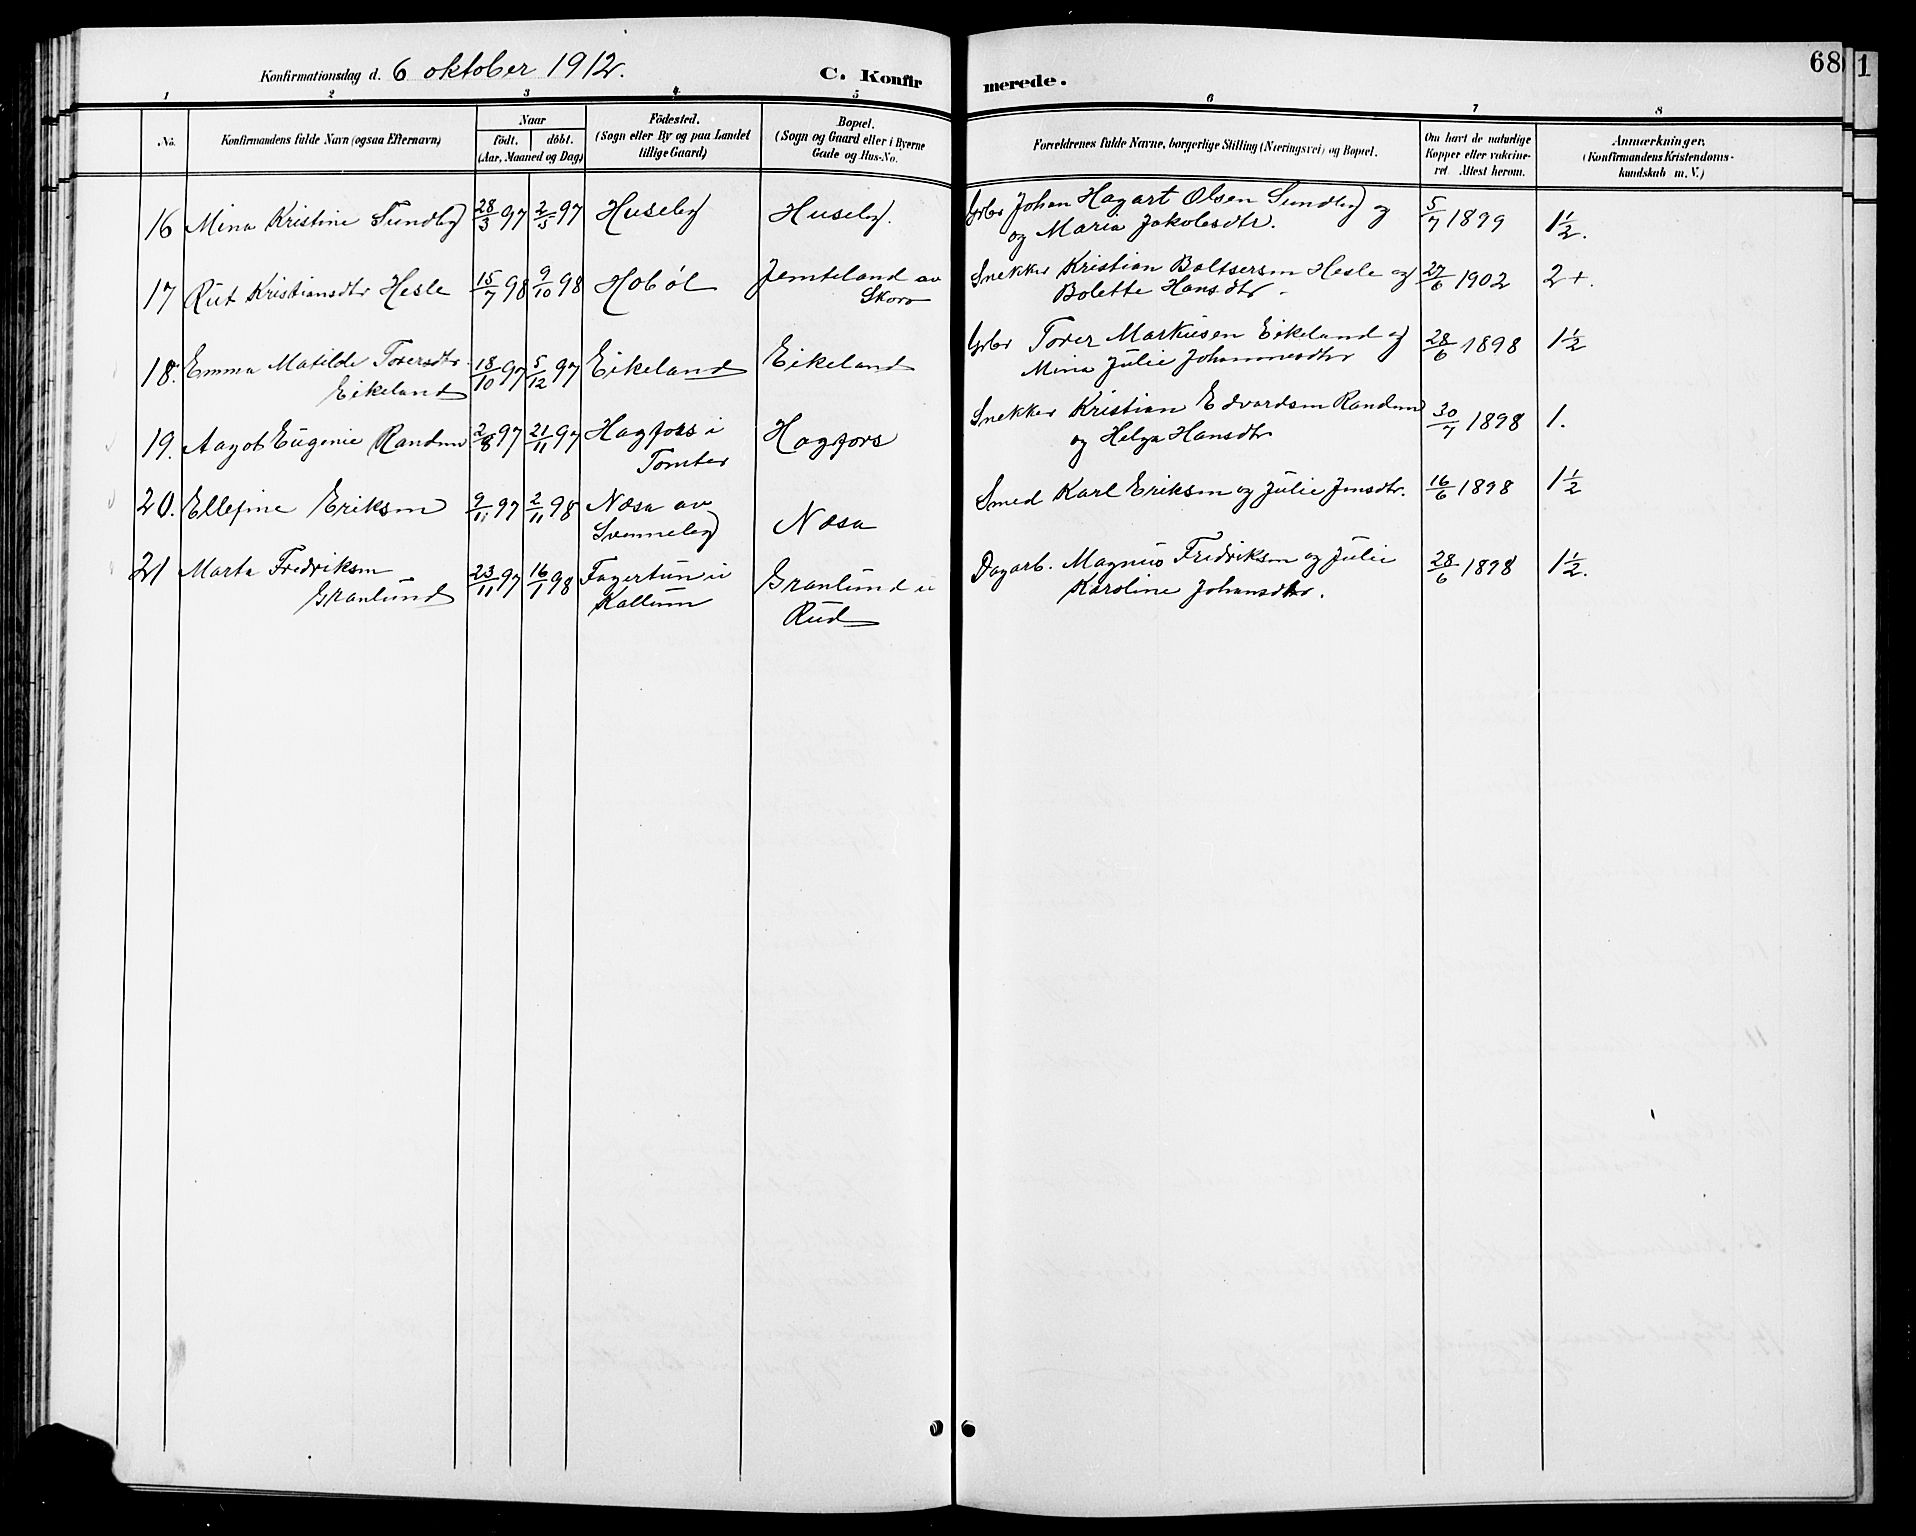 Konfirmationsdag d. 6 oktober 1912. C. Konfirmerede. 68 1
1 2 3 4 5 6 7 8
No. Konfirmandens fulde Navn (ogsaa Efternavn) Naar födt. döbt. (Aar, Maaned og Dag) Födested. (Sogn eller By og paa Landet tillige Gaard) Bopæl. (Sogn og Gaard eller i Byerne Gade og Hus-No. Forældrenes fulde Navne, borgerlige Stilling (Næringsvei) og Bopæl. Om havt de naturlige Kopper eller vakcineret Attest herom. Anmærkninger. (Konfirmandens Kristendomskundskab m. V.)
16 Mina Kristine Sundby 28/3 97 2/5 97 Huseby Huseby. Gbr Johan Hagart Olsen Sundby og 5/7 1899 1½.
og Maria Jakobsdtr.
17 Rut Kristiansdtr Hesle 15/7 98 9/10 98 Hobøl Jemteland av Snekker Kristian Boltsersen Hesle og 27/6 1902 2+.
Skoro Bolette Hansdtr.
18. Emma Matilde Torersdtr 18/10 97 5/12 97 Eikeland Eikeland Gbr Torer Markusen Eikeland og 28/6 1898 1½
Eikeland Mina Julie Johannesdtr
19. Aagot Eugenie Randem 2/8 97 21/11 97 Hagfors i Hagfors Snekker Kristian Edvardsen Randem 30/7 1898 1.
Tomter og Helga Hansdtr
20. Ellefine Eriksen 9/11 97 2/11 98 Næsa av Næsa Smed Karl Eriksen og Julie Jensdtr. 16/6 1898 1½
Svenneby
21 Marta Fredriksen 23/11 97 16/1 98 Fagertun u Granlund u Dagarb. Magnus Fredriksen og Julie 28/6 1898 1½.
Granlund Kallum Rud Karoline Johansdtr.